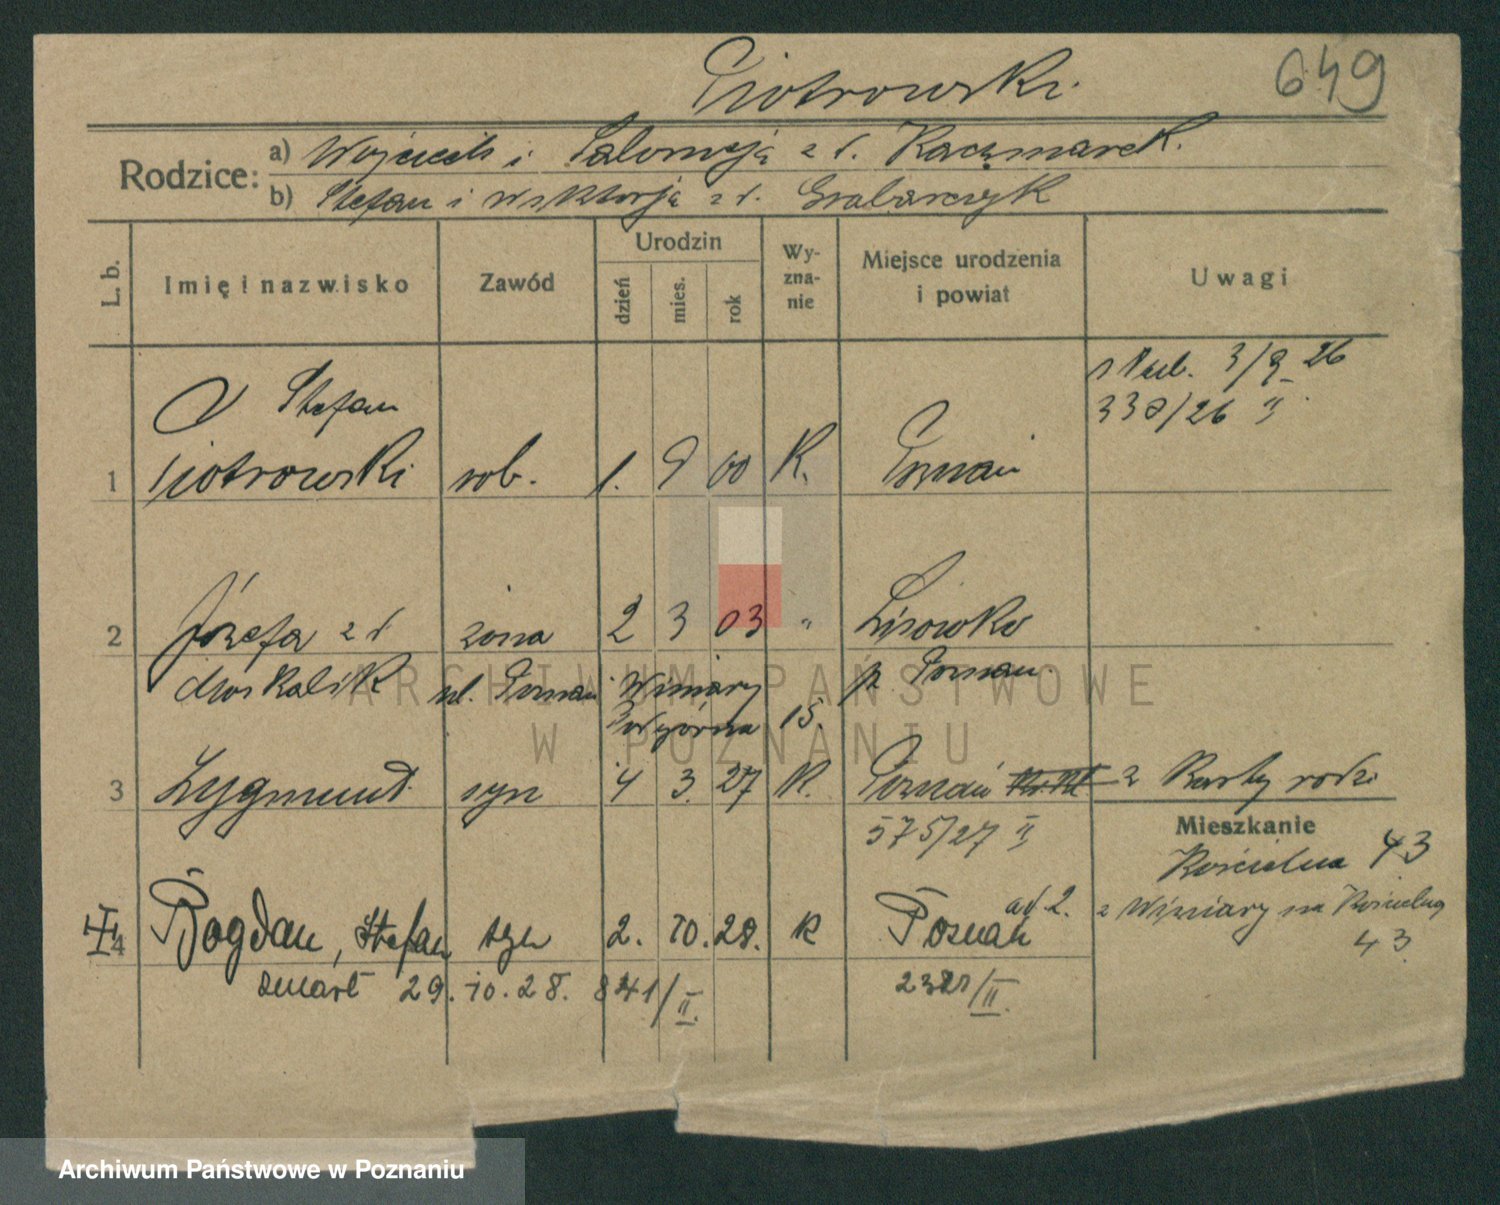 Piotrowski.
649
Rodzice: a) Wojciech i Salomeja z d. Kaczmarek.
b) Stefan i Wiktorja z d. Grabarczyk
L. b.
Imię i nazwisko
Zawód
Urodzin
dzień
mies.
rok
Wy-
zna-
nie
Miejsce urodzenia
i powiat
Uwagi
Stefan
3/9 26
/26 II
1 Piotrowski rob. 1. 9 00 K. Poznań
2 Józefa z d żona 2 3 03 " Lisówko
Moskalik ul. Poznań Winiary p. Poznań
15.
3 Zygmunt syn 4 3. 27 K. Poznań z Karty rodz.
575/27 II
Mieszkanie
Kościelna 43
4 Bogdan, Stefan syn 2. 10. 28. K Poznań ad 2.
z Winiary na Kościelną
43
zmarł 29. 10. 28. 841/II.
/II.
ARCHIWUM PAŃSTWOWE
W POZNANIU
Archiwum Państwowe w Poznaniu